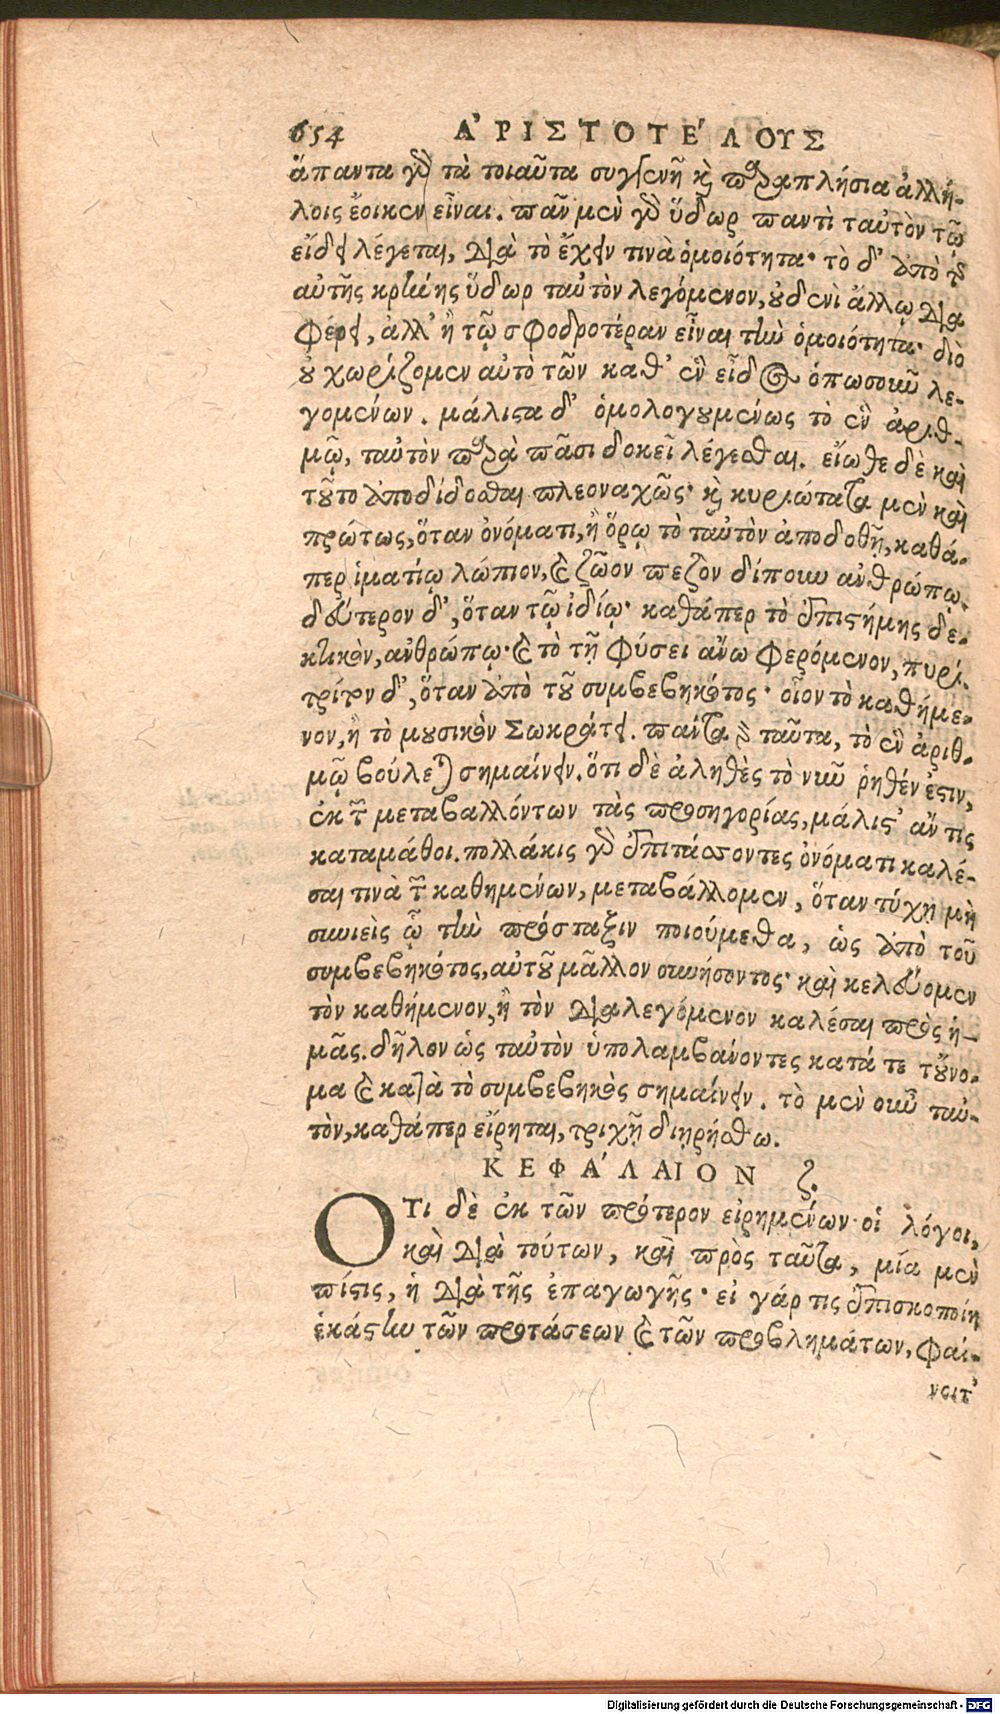 654 Ἀ'ΡΙΣΤΟΤΕ'ΛΟΥΣ
ἅπαντα γὸ τὰ τοιαῦτα συγγενῆ καὶ παραπλήσια ἀλλή-
λοις ἔοικεν εἶναι. πᾶν μὲν γὸ ὕδωρ παντὶ ταὐτὸν τῷ
εἴδει λέγεται, διὰ τὸ ἔχειν τινὰ ὁμοιότητα· τὸ δ' ἀπὸ τῆς
αὐτῆς κρήνης ὕδωρ ταὐτὸν λεγόμενον, οὐδενὶ ἄλλῳ δια
φέρει, ἀλλ' ἢ τῷ σφοδροτέραν εἶναι τὴν ὁμοιότητα· διὸ
οὐ χωρίζομεν αὐτὸ τῶν καθ' ἓν εἶδος ὁπωσοῦν λε-
γομένων. μάλιστα δ' ὁμολογουμένως τὸ ἓν ἀριθ-
μῷ, ταὐτὸν παρὰ πᾶσι δοκεῖ λέγεσθαι. εἴωθε δὲ καὶ
τοῦτο ἀποδίδοσθαι πλεοναχῶς· καὶ κυριώτατα μὲν καὶ
πρώτως, ὅταν ὀνόματι, ἢ ὅρῳ τὸ ταὐτὸν ἀποδοθῇ, καθά-
περ ἱματίῳ λώπιον, καὶ ζῶον πεζὸν δίπουν ἀνθρώπῳ.
δεύτερον δ', ὅταν τῷ ἰδίῳ· καθάπερ τὸ ἐπιστήμης δε-
κτικὸν, ἀνθρώπῳ· καὶ τὸ τῇ φύσει ἄνω φερόμενον, πυρί.
τρίτον δ', ὅταν ἀπὸ τοῦ συμβεβηκότος· οἷον τὸ καθήμε-
νον, ἢ τὸ μουσικὸν Σωκράτει. πάντα γὸ ταῦτα, τὸ ἓν ἀριθ-
μῷ βούλεται σημαίνειν. ὅτι δὲ ἀληθὲς τὸ νῦν ῥηθέν ἐστιν,
ἐκ τῶν μεταβαλλόντων τὰς προσηγορίας, μάλιστ' ἄν τις
καταμάθοι. πολλάκις γὸ ἐπιτάσσοντες ὀνόματι καλέ-
σαι τινὰ τῶν καθημένων, μεταβάλλομεν, ὅταν τύχῃ μὴ
συνιεὶς ᾧ τὴν πρόσταξιν ποιούμεθα, ὡς ἀπὸ τοῦ
συμβεβηκότος, αὐτοῦ μᾶλλον συνήσοντος· καὶ κελεύομεν
τὸν καθήμενον, ἢ τὸν διαλεγόμενον καλέσαι πρὸς ἡ-
μᾶς. δῆλον ὡς ταὐτὸν ὑπολαμβάνοντες κατά τε τοὔνο-
μα καὶ κατὰ τὸ συμβεβηκὸς σημαίνειν. τὸ μὲν οὖν ταὐ-
τὸν, καθάπερ εἴρηται, τριχῇ διῃρήσθω.
ΚΕΦΑ'ΛΑΙΟΝ ζ.
ΟΤι δὲ ἐκ τῶν πρότερον εἰρημένων οἱ λόγοι,
καὶ διὰ τούτων, καὶ πρὸς ταῦτα, μία μὲν
πίστις, ἡ διὰ τῆς ἐπαγωγῆς· εἰ γάρ τις ἐπισκοποίη
ἑκάστην τῶν προτάσεων καὶ τῶν προβλημάτων, φαί-
νοιτ'
Digitalisierung gefördert durch die Deutsche Forschungsgemeinschaft - DFG